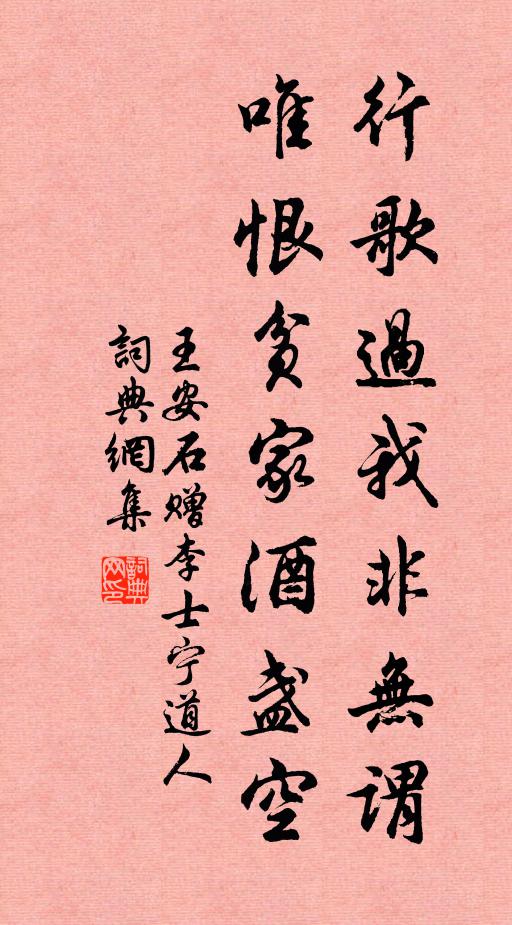 行歌過我非無謂
唯恨貧家酒盞空
王安石赠李士宁道人
詞典網集
詞典网印